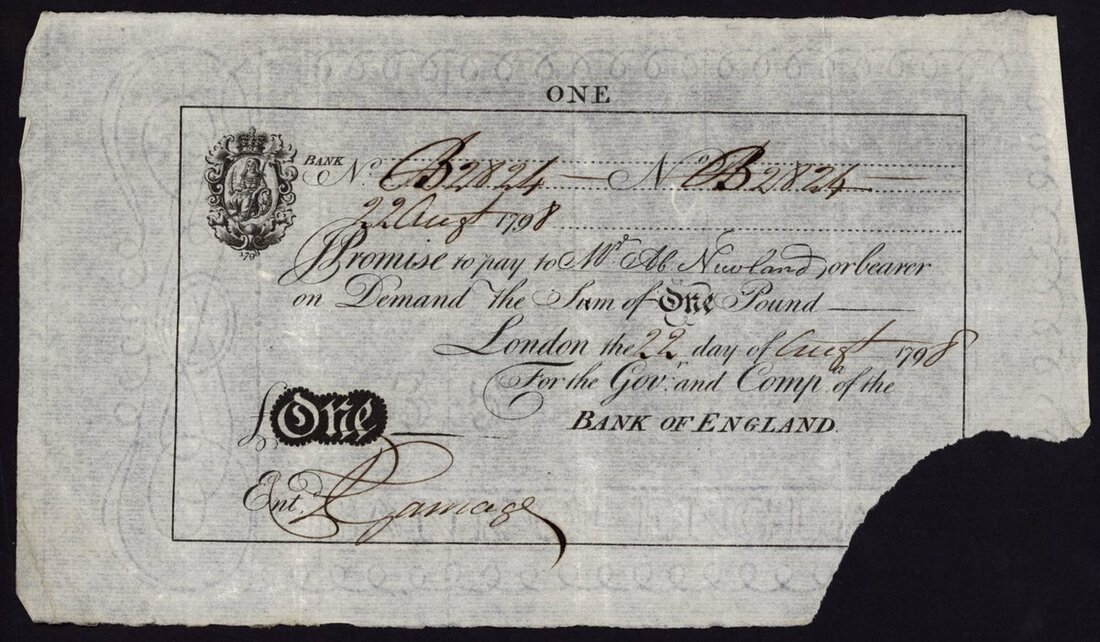 ONE
BANK No. B2824 — No. B2824 —
22 Augt 1798
I Promise to pay to Mr. Ab. Newland, or bearer
on Demand the Sum of One Pound
London the 22 day of Augt 1798
For the Govr. and Compa. of the
BANK OF ENGLAND.
£ One
Entd. Ramage